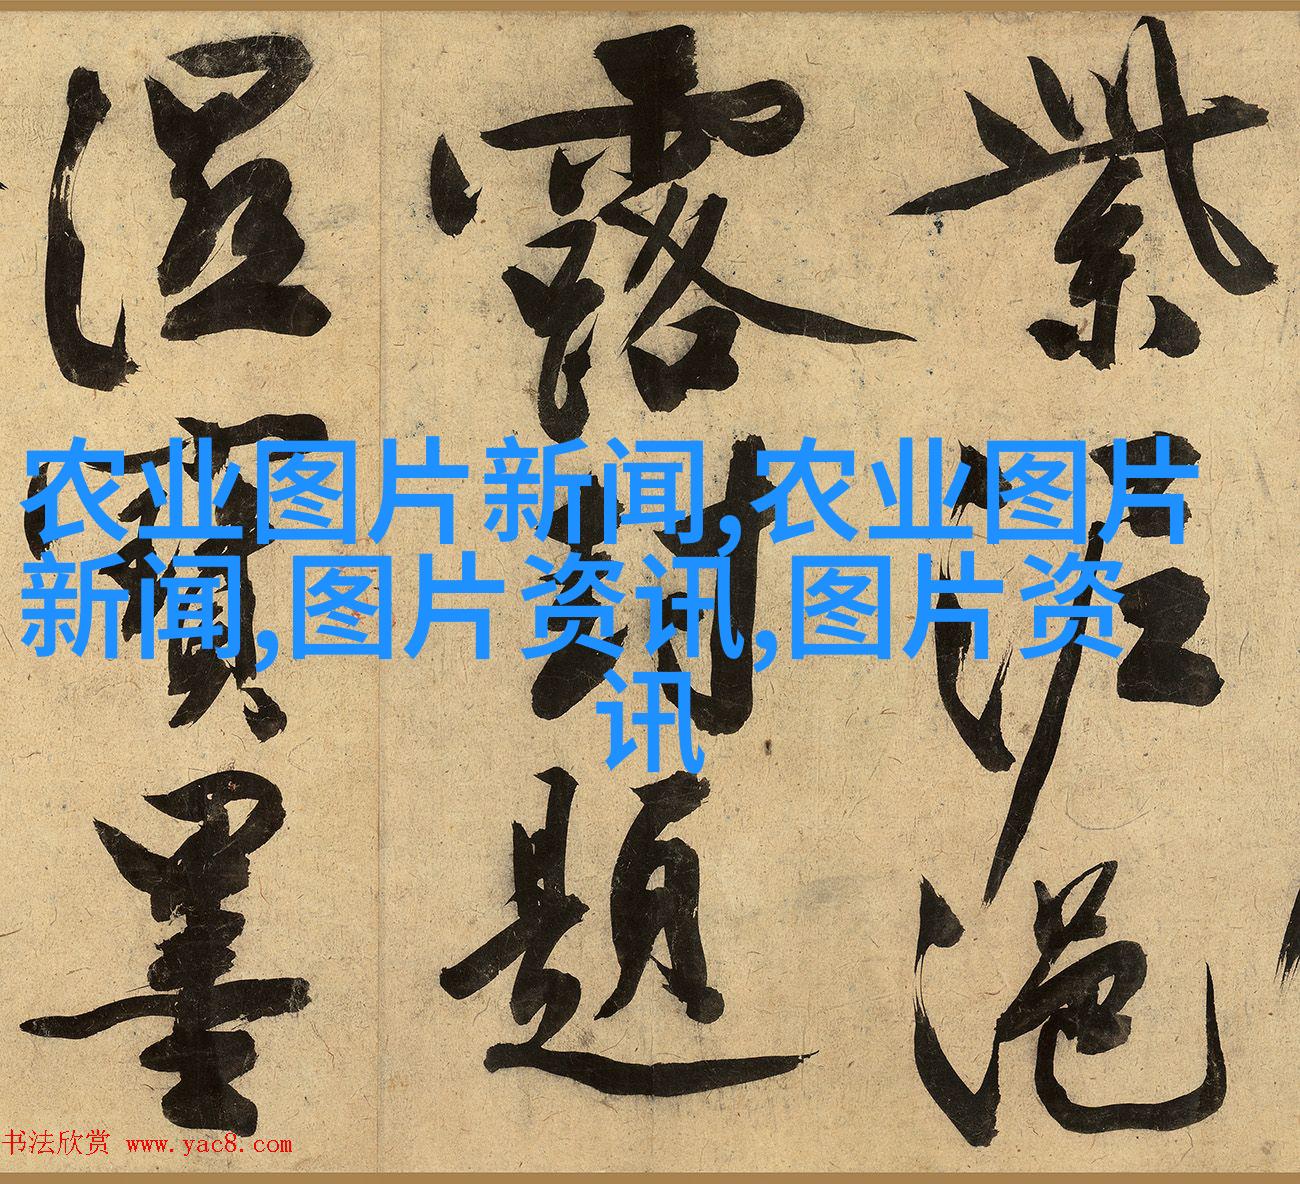 紫泥浥
露封題
溼寶墨
农业图片新闻,农业图片
新闻,图片资讯,图片资
讯
书法欣赏 www.yac8.com